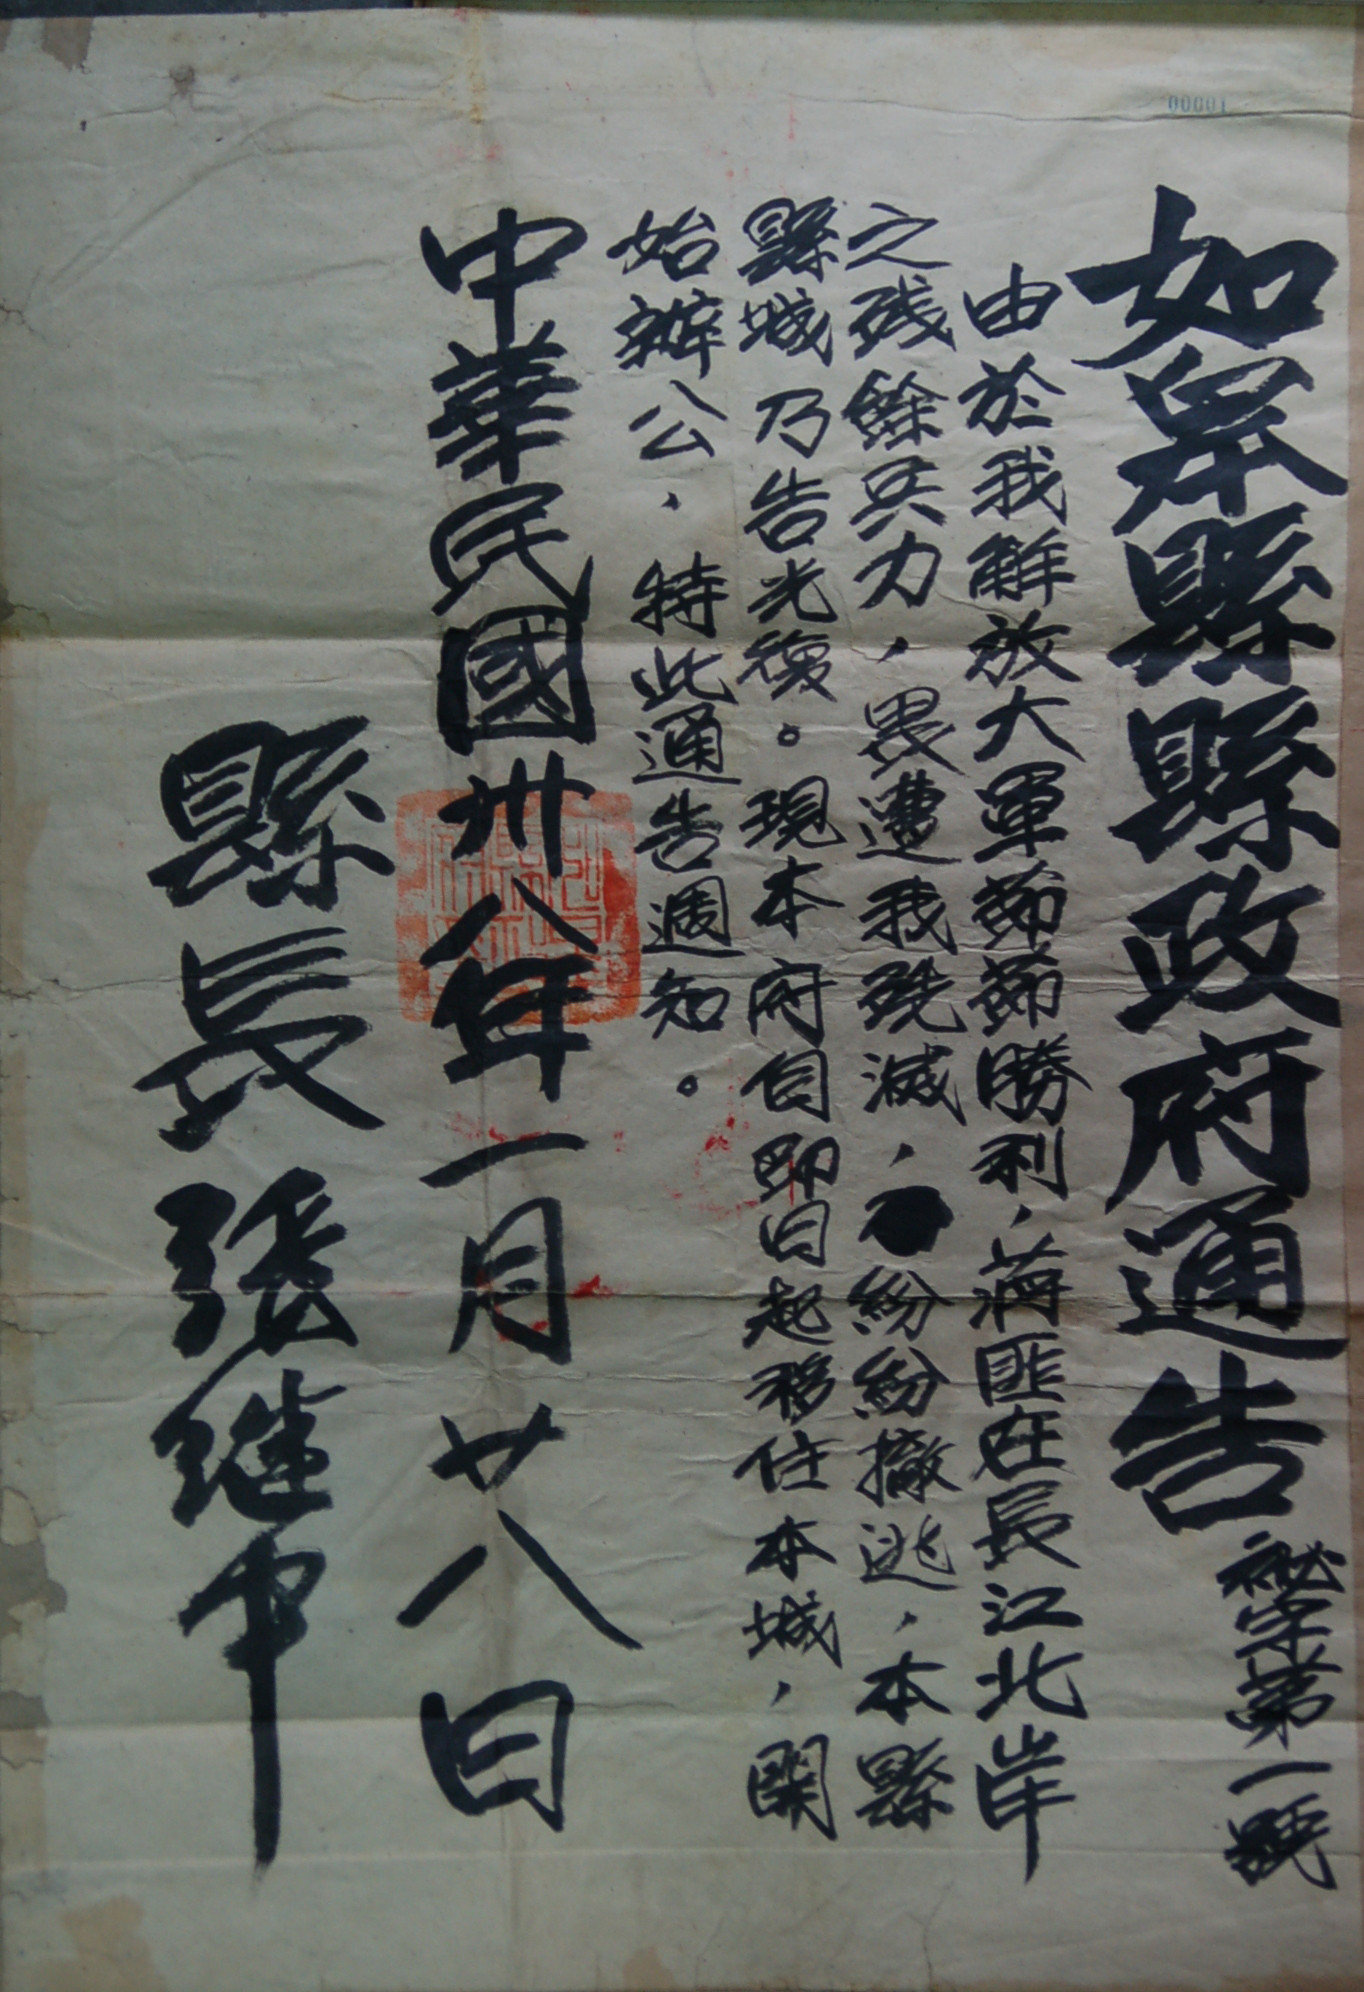 00001
如皋縣縣政府通告
秘字第一號
由於我解放大軍節節勝利，蔣匪在長江北岸
之殘餘兵力，畏遭我殲滅，紛紛撤逃，本縣
縣城乃告光復。現本府自即日起移住本城，開
始辦公，特此通告週知。
中華民國卅八年一月廿八日
縣長張継申